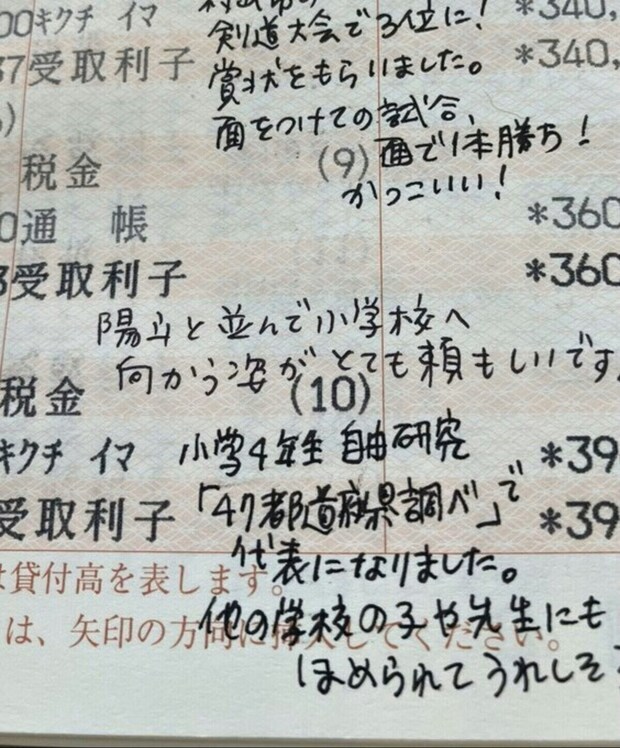 00キクチ イマ *340,
剣道大会で3位に!
37受取利子 *340,
賞状をもらいました。
面をつけての試合、
税金 (9) 面で1本勝ち!
かっこいい!
0通 帳 *360
3受取利子 *360
陽斗と並んで小学校へ
何かう姿がとても頼もしいです。
税金 (10)
キクチ イマ 小学4年生 自由研究 *39
受取利子 「47都道府県調べ」で *39
代表になりました。
は貸付高を表します。
他の学校の子や先生にも
は、矢印の方向に
ください。
ほめられてうれしそ